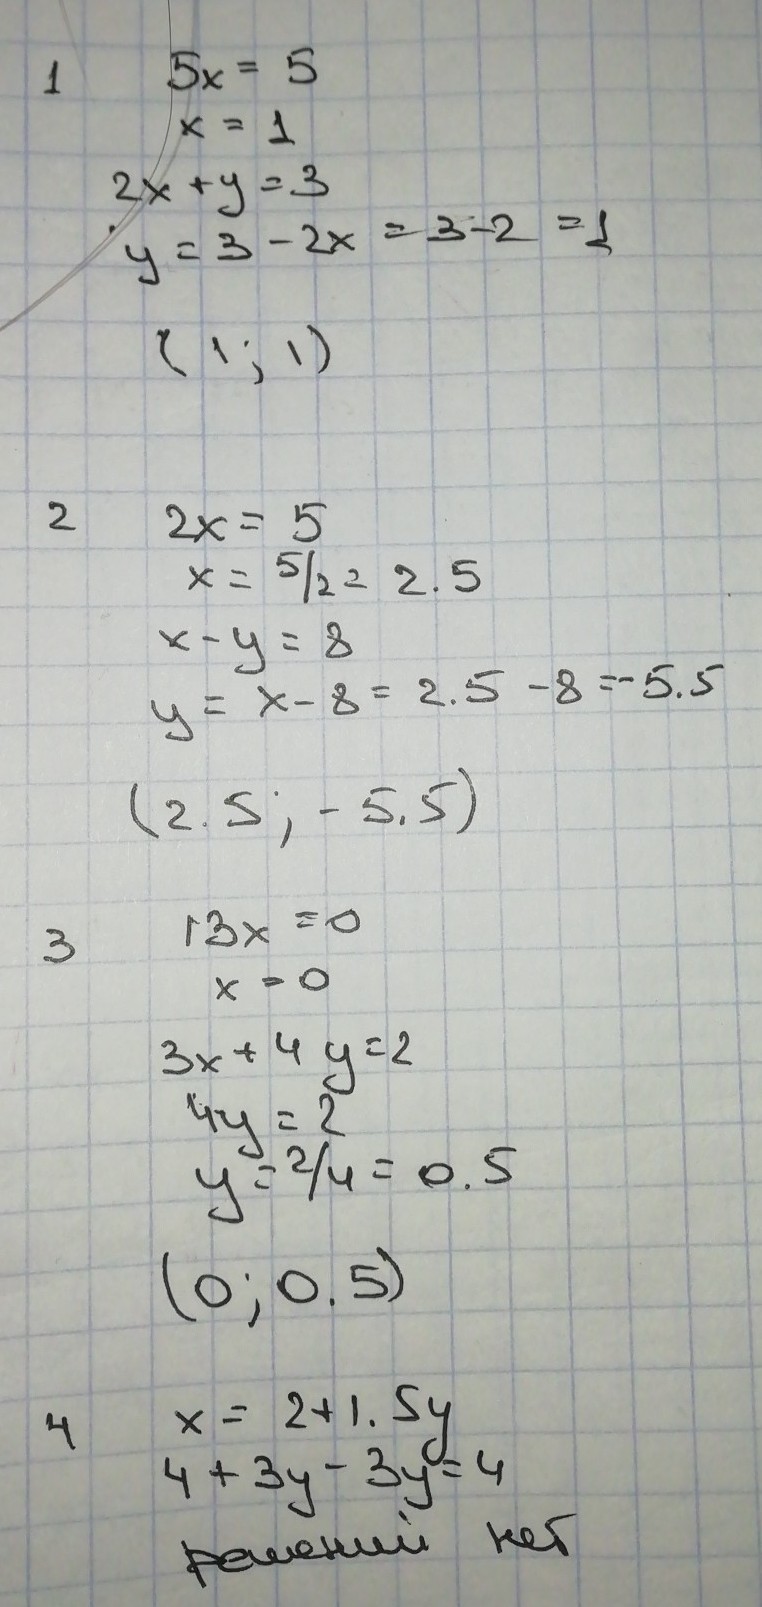 1 5x = 5
x = 1
2x + y = 3
y = 3 - 2x = 3-2 = 1
(1; 1)
2 2x = 5
x = 5/2 = 2.5
x - y = 8
y = x - 8 = 2.5 - 8 = -5.5
(2.5; -5.5)
3 13x = 0
x = 0
3x + 4y = 2
4y = 2
y = 2/4 = 0.5
(0; 0.5)
4 x = 2+1.5y
4 + 3y - 3y = 4
решений нет